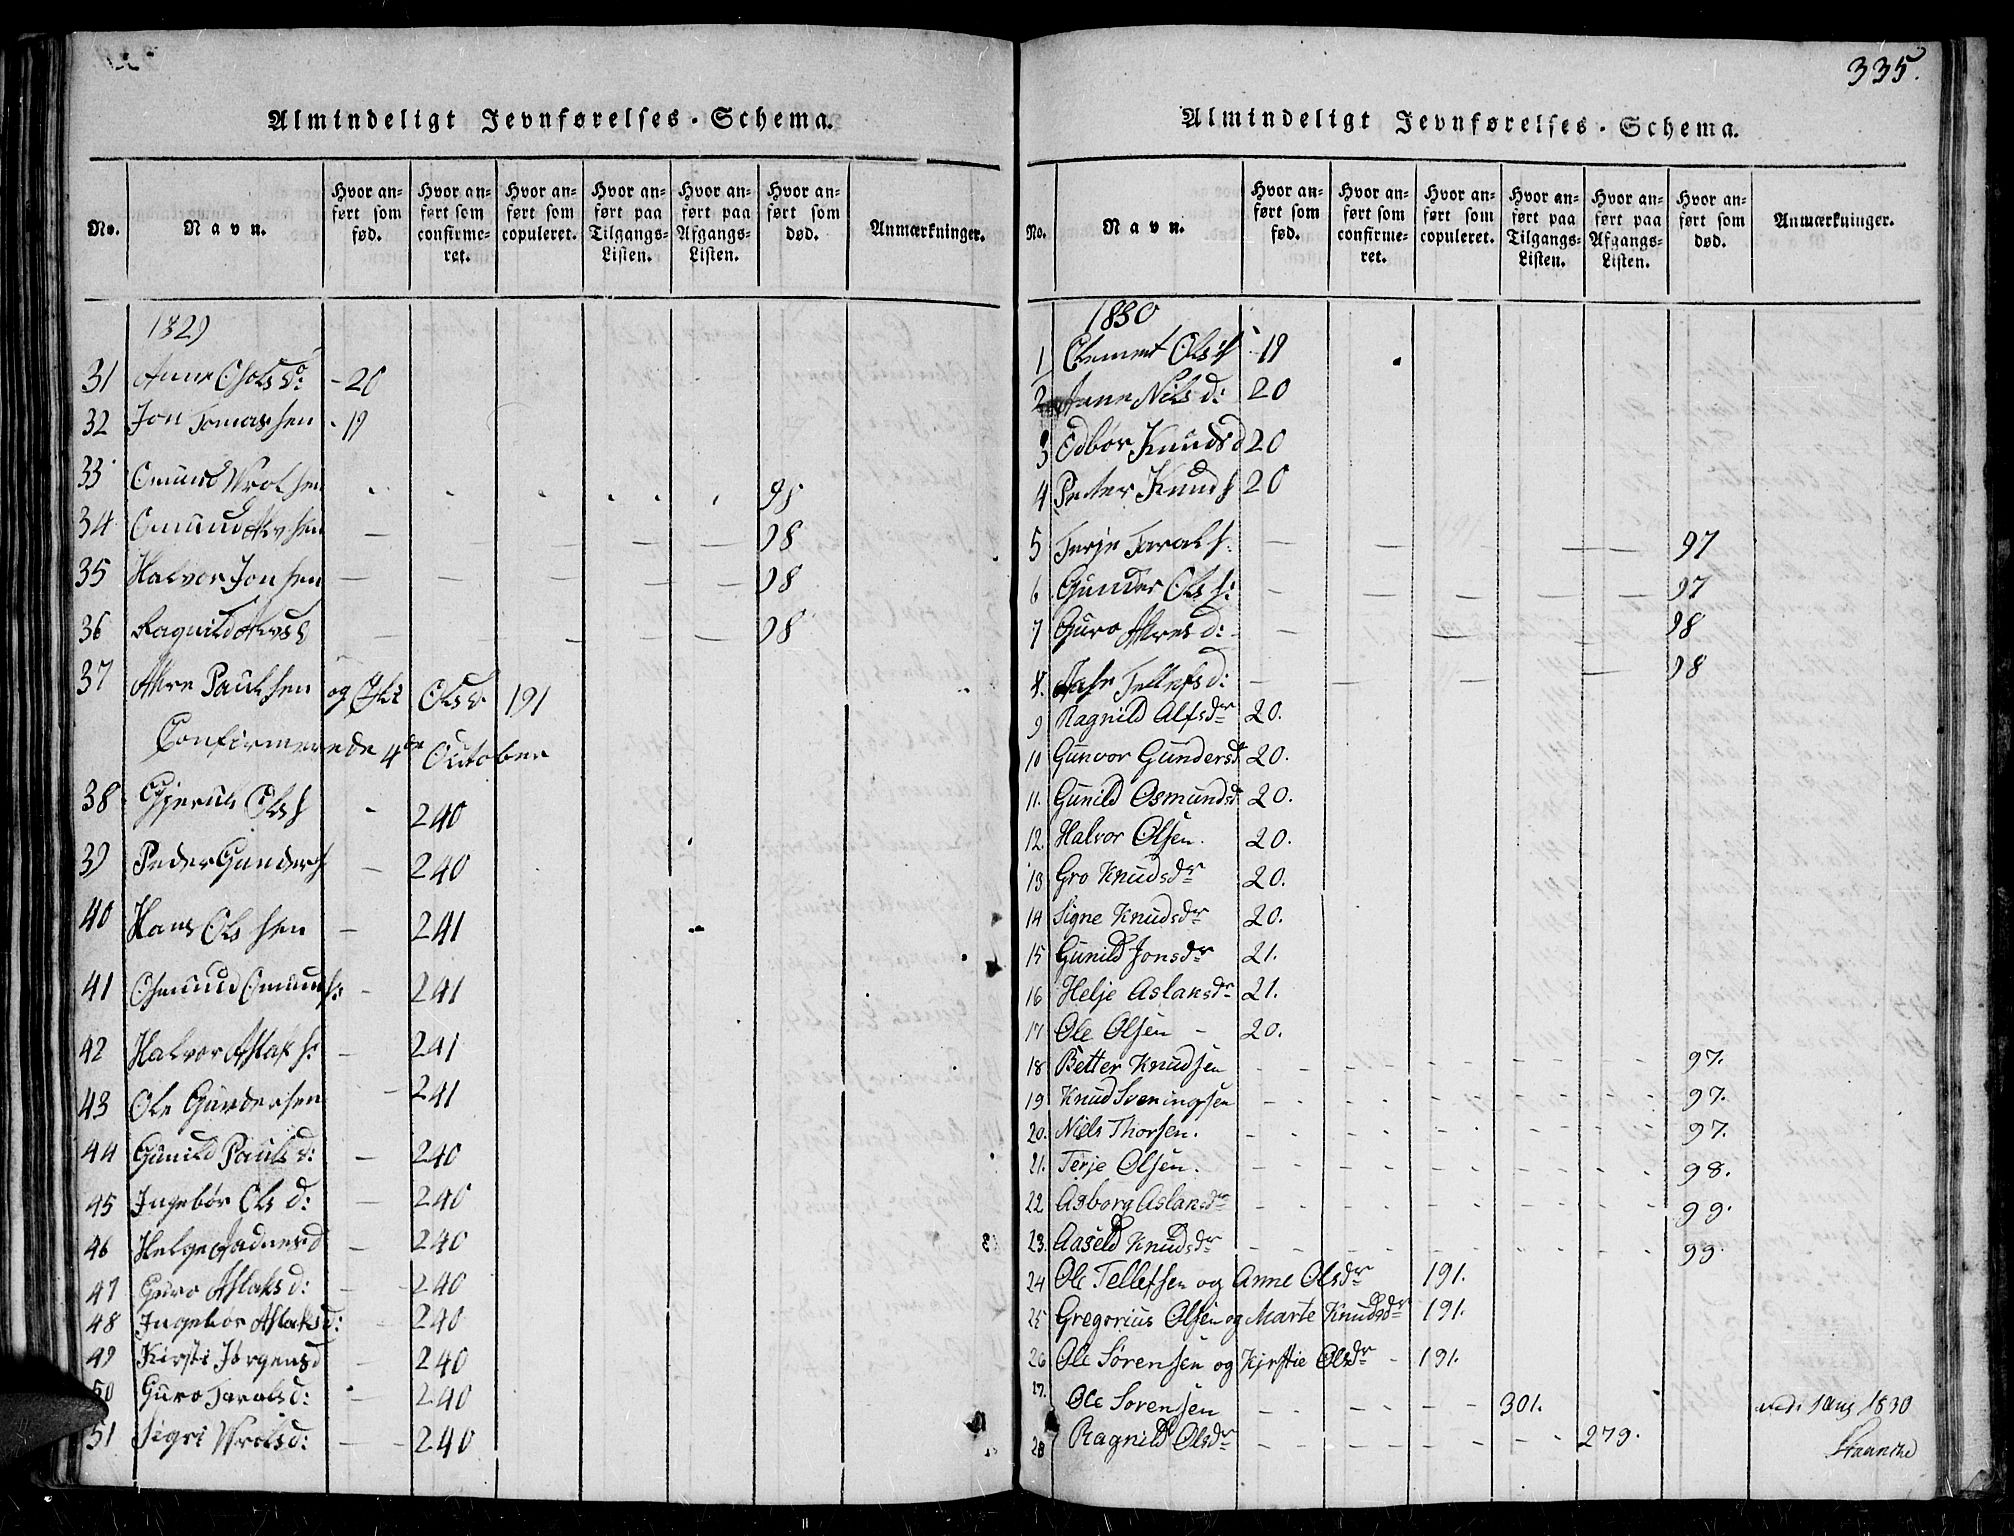 335.
Almindeligt Jevnførelses-Schema.
No. Navn. Hvor anført som fød. Hvor anført som confirmeret. Hvor anført som copuleret. Hvor anført paa Tilgangs-Listen. Hvor anført paa Afgangs-Listen. Hvor anført som død. Anmærkninger.
1829
31 Anne Ols d: - 20
32 Jon Tomassen - 19
33 Omund Wrolsen 95
34 Omund 98
35 Halvor Jonsen 98
36 Ragnild 98
37 Akre Paulsen og Olsd 191
Confirmerede 4de October
38 Gjeruls Ols - 240
39 Peder Gunders - 240
40 Hans Olssen - 241
41 Osmund Omunds: - 241
42 Halvor Aslaks: - 241
43 Ole Gundersen - 241
44 Gunild Pauls d: - 240
45 Ingebör Ols d: - 240
46 Helge d - 240
47 Guro Aslaks d: - 240
48 Ingebör Aslaks d: - 240
49 Kirsti Jörgens d - 240
50 Guro Tarals d: - 240
51 Sigri Wrols d: - 240
Almindeligt Jevnførelses-Schema.
No. Navn. Hvor anført som fød. Hvor anført som confirmeret. Hvor anført som copuleret. Hvor anført paa Tilgangs-Listen. Hvor anført paa Afgangs-Listen. Hvor anført som død. Anmærkninger.
1830
1 Clement Ols 19
2 Anne Nils d: 20
3 Edbör Knuds d 20
4 Peter Knuds 20
5 Terje Tarals: 97
6 Gunder Ols: 97
7 Guro Akres d: 98
8. Tellefs d: 98
9 Ragnild Alfsdr 20.
10 Gunvor Gundersdr 20.
11. Gunild Osmundsdr 20.
12. Halvor Olsen. 20.
13 Gro Knudsdr 20.
14 Signe Knudsdr 20.
15 Gunild Jonsdr 21.
16 Helje Aslaksdr 21.
17 Ole Olsen - 20.
18 Petter Knudsen 97.
19 Knud Sveningsen 97.
20. Niels Thorsen. 97.
21. Terje Olsen. 98.
22 Asborg Aslaksdr 99.
23. Aaseld Knudsdr 99.
24 Ole Tellefsen og Anne Olsdr 191.
25 Gregorius Olsen og Marte Knudsdr 191.
26 Ole Sörensen og Kjrstie Olsdr - 191.
27. Ole Sörensen 301. 1 Aug 1830
28 Ragnild Olsdr 279.